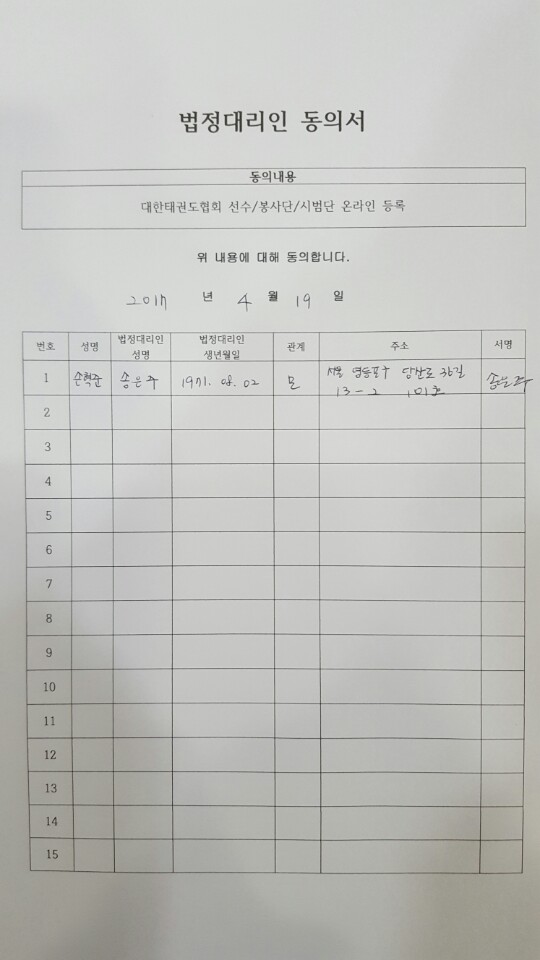 법정대리인 동의서
동의내용
대한태권도협회 선수/봉사단/시범단 온라인 등록
위 내용에 대해 동의합니다.
2017 년 4 월 19 일
번호 성명 법정대리인 성명 법정대리인 생년월일 관계 주소 서명
1 손혁준 송은주 1971. 08. 02 모 서울 영등포구 당산로 36길 송은주
13-2 101호
2
3
4
5
6
7
8
9
10
11
12
13
14
15